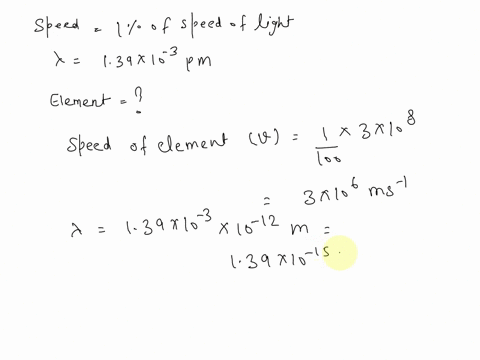 Speed = 1% of speed of light
λ = 1.39 × 10⁻³ pm
Element = ?
Speed of element (v) = 1/100 × 3 × 10⁸
= 3 × 10⁶ ms⁻¹
λ = 1.39 × 10⁻³ × 10⁻¹² m =
1.39 × 10⁻¹⁵